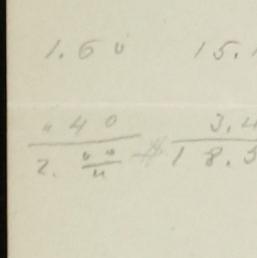 1.60 15.
" 40 3.4
2. 00 # 18.5